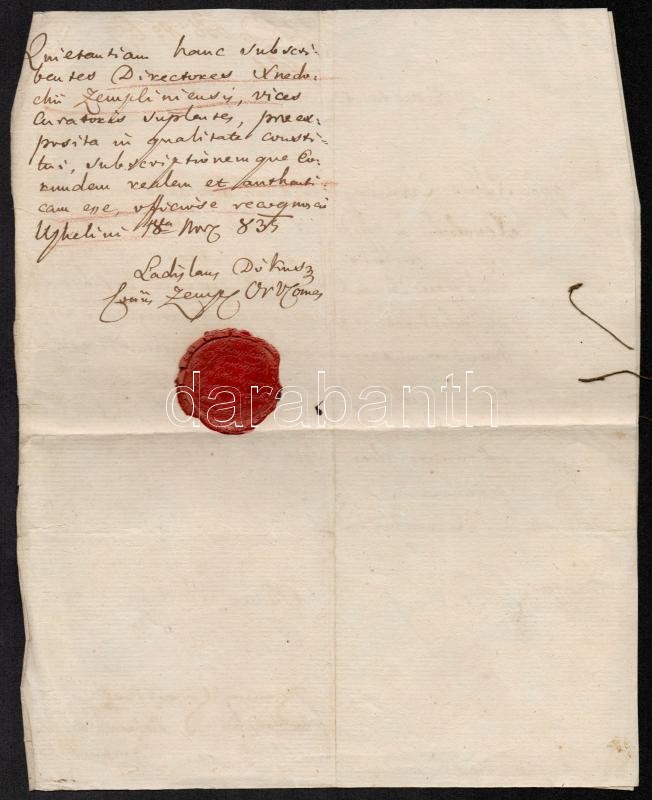 Quietantiam hanc subscri-
bentes Directores Xnedo-
chii Zempliniensis, vices
Curatoris suplentes, præex-
posita in qualitate consti-
tui, subscriptionemque Eo-
rundem realem et authenti-
cam esse, officiose recognosco
Ujhelini 18a 835
Ladislaus
Zempl
darabanth